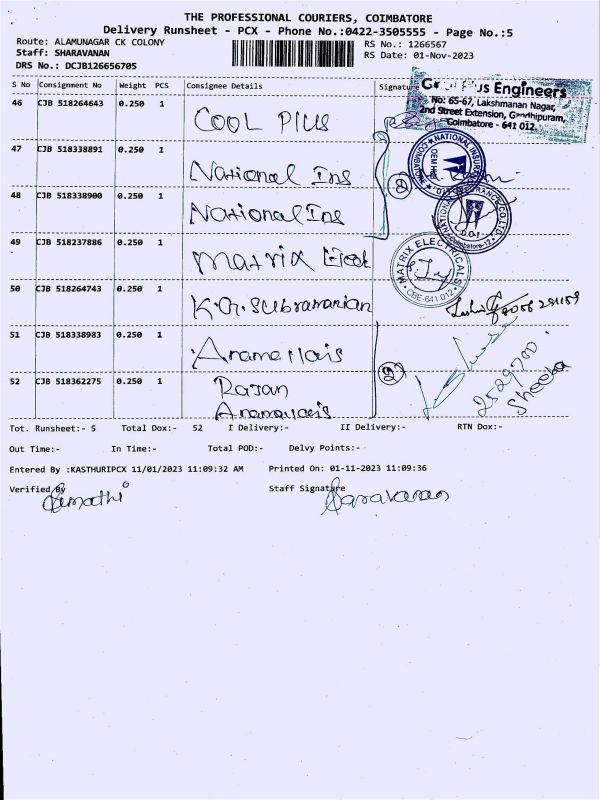 THE PROFESSIONAL COURIERS, COIMBATORE
Delivery Runsheet - PCX - Phone No.:0422-3505555 - Page No.:5
Route: ALAMUNAGAR CK COLONY RS No.: 1266567
Staff: SHARAVANAN RS Date: 01-Nov-2023
DRS No.: DCJB126656705
S No Consignment No Weight PCS Consignee Details Signature
Plus Engineers
No: 65-67, Lakshmanan Nagar,
2nd Street Extension, Gandhipuram,
Coimbatore - 641 012.
46 CJB 518264643 0.250 1 COOL PlUS
47 CJB 518338891 0.250 1 National Ins
48 CJB 518338900 0.250 1 National Ins
49 CJB 518237886 0.250 1 Matrix
MATRIX ELECTRICALS
CBE-641 012
50 CJB 518264743 0.250 1 K.G. Subramanian
51 CJB 518338983 0.250 1
2529700
Sheeba
52 CJB 518362275 0.250 1 Rajan
Tot. Runsheet:- 5 Total Dox:- 52 I Delivery:- II Delivery:- RTN Dox:-
Out Time:- In Time:- Total POD:- Delvy Points:-
Entered By :KASTHURIPCX 11/01/2023 11:09:32 AM Printed On: 01-11-2023 11:09:36
Verified By Staff Signature
Saravanan